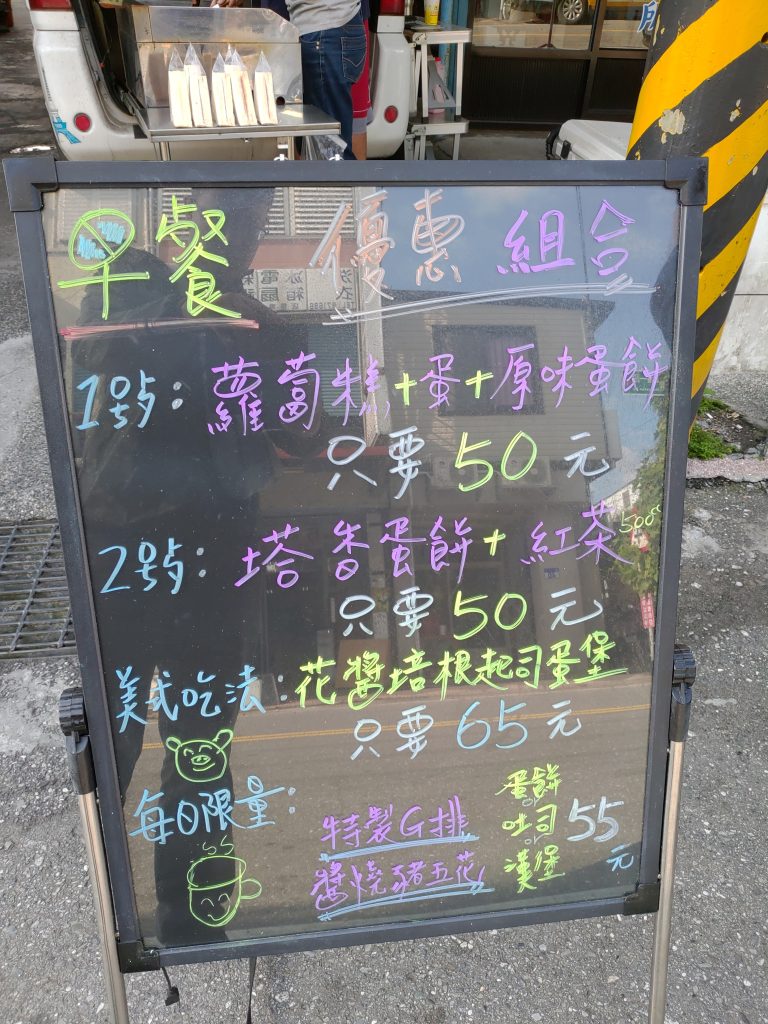 早餐 優惠 組合
1号: 蘿蔔糕+蛋+原味蛋餅
只要 50 元
2号: 塔香蛋餅+紅茶 500cc
只要 50 元
美式吃法: 花醬培根起司蛋堡
只要 65 元
每日限量:
特製G排
醬燒豬五花
蛋餅
or
吐司
or
漢堡
55
元